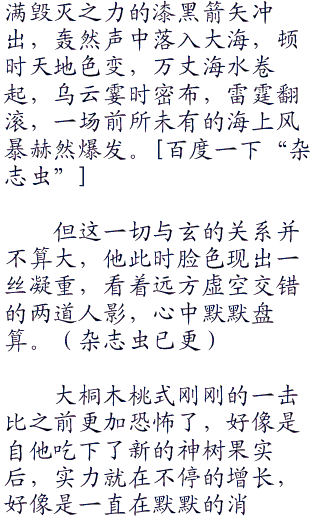 满毁灭之力的漆黑箭矢冲
出，轰然声中落入大海，顿
时天地色变，万丈海水卷
起，乌云霎时密布，雷霆翻
滚，一场前所未有的海上风
暴赫然爆发。[百度一下“杂
志虫”]
但这一切与玄的关系并
不算大，他此时脸色现出一
丝凝重，看着远方虚空交错
的两道人影，心中默默盘
算。（杂志虫已更）
大桐木桃式刚刚的一击
比之前更加恐怖了，好像是
自他吃下了新的神树果实
后，实力就在不停的增长，
好像是一直在默默的消